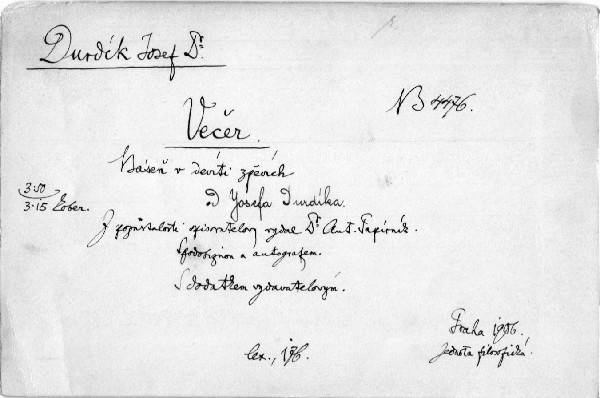 Durdík Josef Dr.
NB 4476.
Večer.
Báseň v devíti zpěvích
Od Josefa Durdíka.
3·50
3·15 Eber.
Z pozůstalosti spisovatelovy vydal Dr Aut. Papírník.
S podobiznou a autografem.
S dodatkem vydavatelovým.
Praha
Jednota filosofická.
lex.,